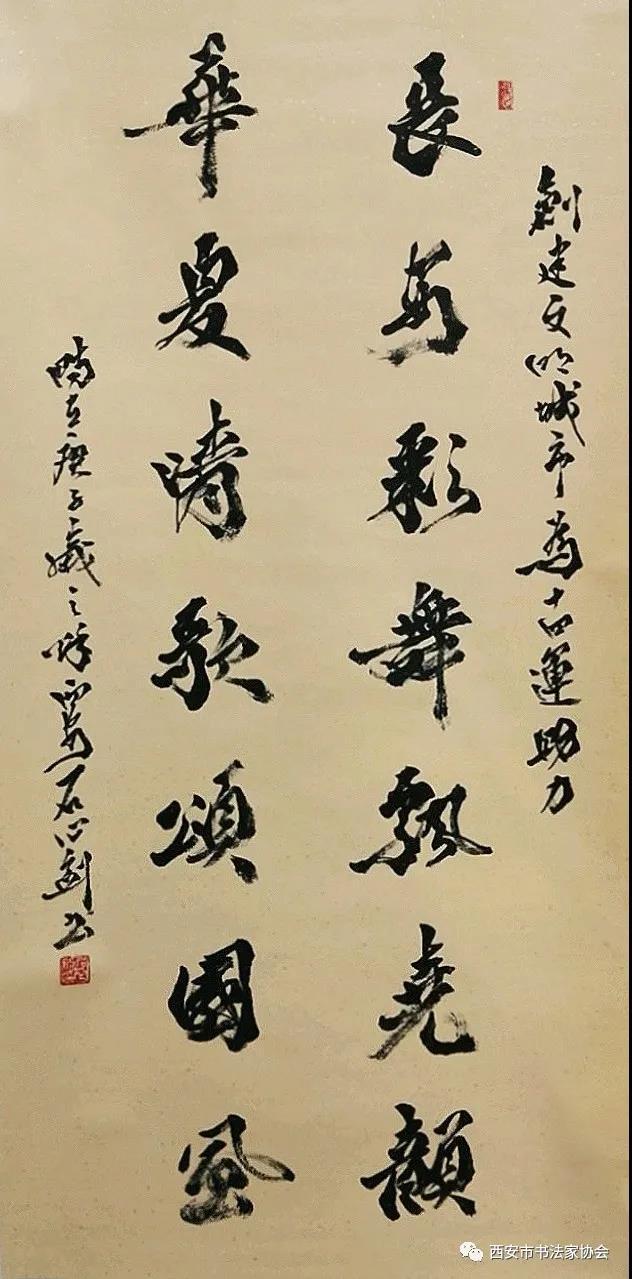 創建文明城市為十四運助力
長安彩舞飄堯韻
華夏晴歌頌國風
時在庚子歲之西安石心劍書
西安市书法家协会